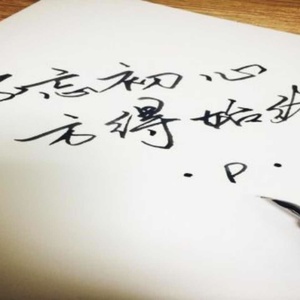 不忘初心
方得始终
.P.